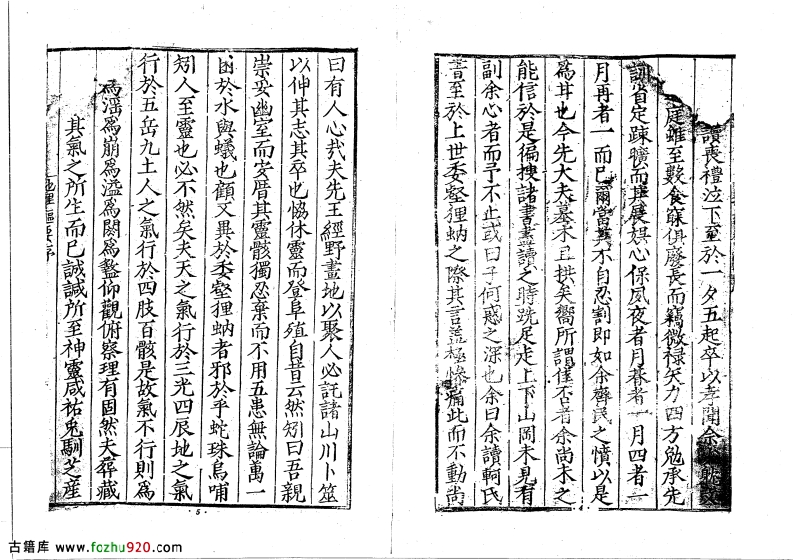 讀喪禮泣下至於一夕五起卒以孝聞余
庭雖至數食寐俱廢長而竊微祿矢力四方勉承先
訓省定踈曠而其展娯心保夙夜者月朞者一月四者一
月再者一而已爾當其不自忍割即如余齊民之憤以是
為其也今先大夫墓木且拱矣嚮所謂僅否者余尚未之
能信於是徧搜諸書盡讀之時跣足走上下山岡未見有
副余心者而予不止或曰子何惑之深也余曰余讀軻氏
書至於上世委壑狸蚋之際其言盖極慘痛此而不動尚
曰有人心㢤夫先王經野畫地以聚人必託諸山川卜筮
以伸其志其卒也恊休靈而登阜殖自昔云然矧曰吾親
崇妥幽室而安厝其靈骸獨忍棄而不用五患無論萬一
困於水與蟻也顧又異於委壑狸蚋者邪於乎蛇珠烏哺
矧人至靈也必不然矣夫天之氣行於三光四辰地之氣
行於五岳九土人之氣行於四肢百骸是故氣不行則為
為淫為崩為溢為閼為蝥仰觀俯察理有固然夫羣藏
其氣之所生而已誠諴所至神靈咸祐兎馴芝産
地理樞要序
5
古籍库 www.fozhu920.com